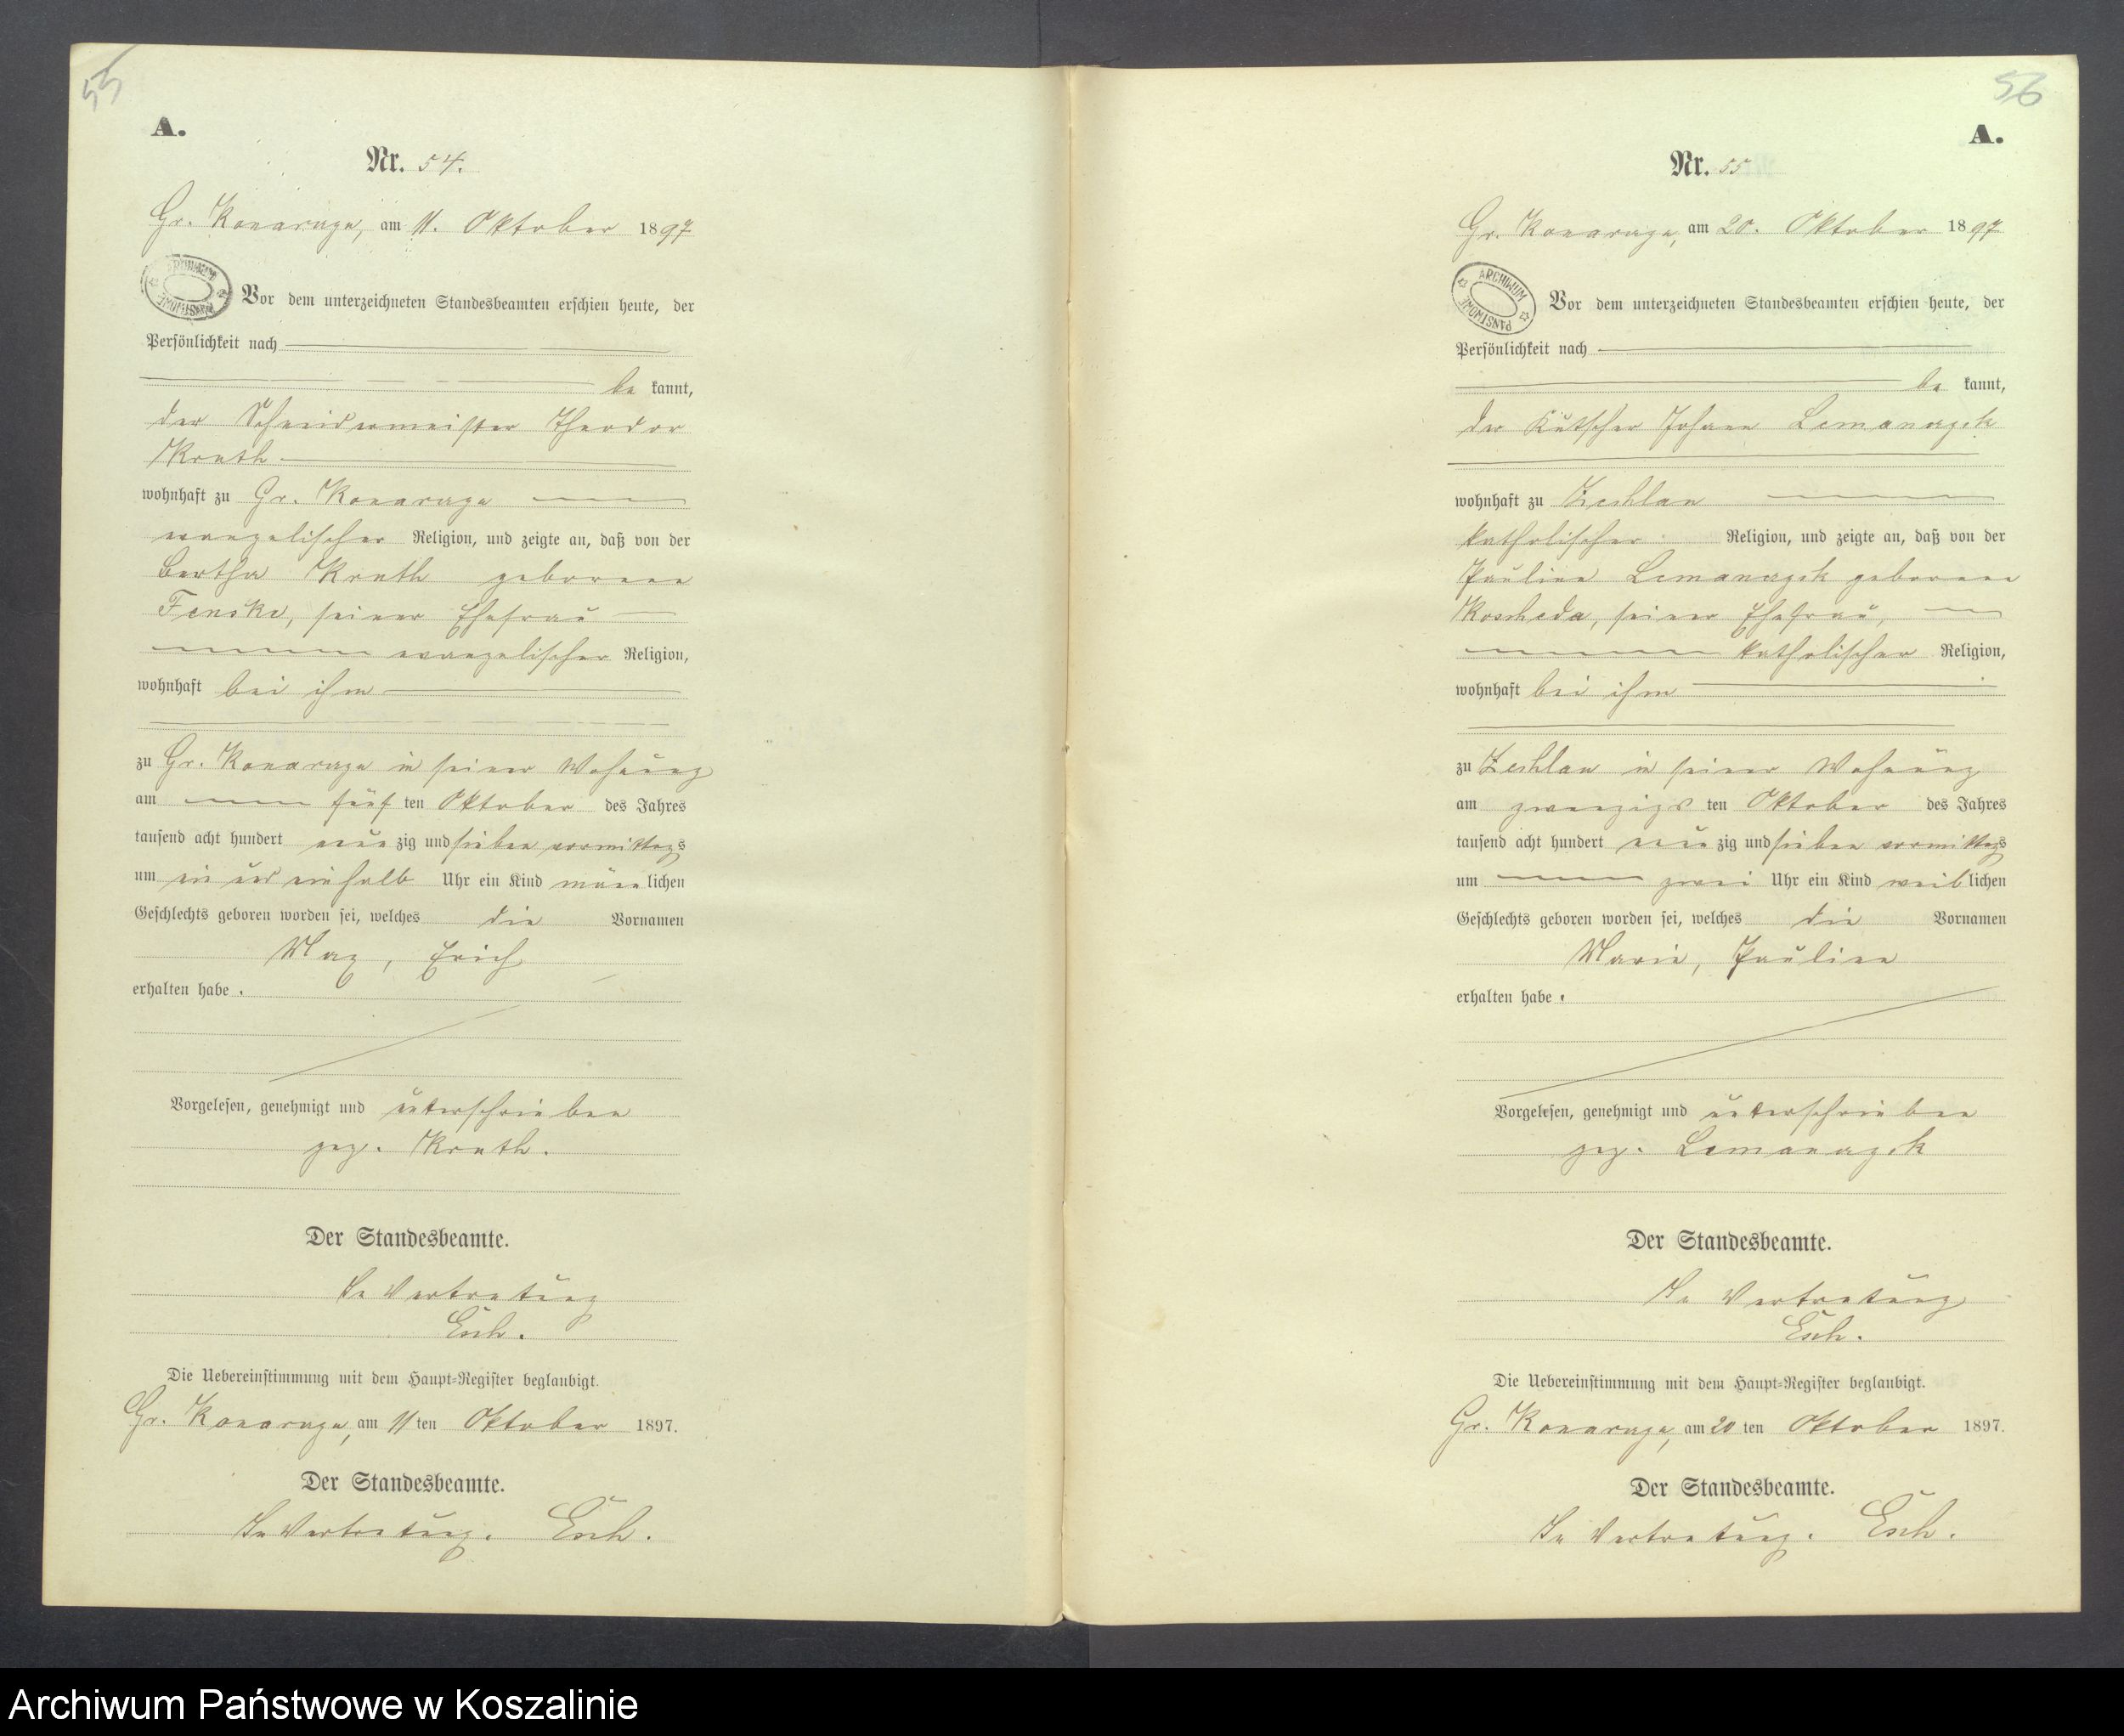 55
A.
Nr. 54.
Gr. Konarczyn, am 11. Oktober 1897
ARCHIWUM PAŃSTWOWE
Vor dem unterzeichneten Standesbeamten erschien heute, der
Persönlichkeit nach
be kannt,
der Schneidermeister Theodor
Knuth
wohnhaft zu Gr.
evangelischer Religion, und zeigte an, daß von der
Bertha Knuth geborene
Fenske, seiner Ehefrau
evangelischer Religion,
wohnhaft bei ihm
zu Gr. in seiner Wohnung
am fünf ten Oktober des Jahres
tausend acht hundert neun zig und sieben vormittags
um ein und einhalb Uhr ein Kind männ lichen
Geschlechts geboren worden sei, welches die Vornamen
Max, Erich
erhalten habe.
Vorgelesen, genehmigt und unterschrieben
gez. Knuth.
Der Standesbeamte.
In Vertretung
Esch.
Die Uebereinstimmung mit dem Haupt-Register beglaubigt.
Gr. am 11 ten Oktober 1897.
Der Standesbeamte.
In Vertretung. Esch.
56
A.
Nr. 55
Gr. am 20. Oktober 1897
ARCHIWUM PAŃSTWOWE
Vor dem unterzeichneten Standesbeamten erschien heute, der
Persönlichkeit nach
be kannt,
der Kutscher Johann Lemanczik
wohnhaft zu Zechlau
katholischer Religion, und zeigte an, daß von der
Pauline Lemanczik geborene
seiner Ehefrau,
katholischer Religion,
wohnhaft bei ihm
zu Zechlau in seiner Wohnung
am zwanzigs ten Oktober des Jahres
tausend acht hundert neun zig und sieben vormittags
um zwei Uhr ein Kind weib lichen
Geschlechts geboren worden sei, welches die Vornamen
Marie, Pauline
erhalten habe.
Vorgelesen, genehmigt und unterschrieben
gez. Lemanczik
Der Standesbeamte.
In Vertretung
Esch.
Die Uebereinstimmung mit dem Haupt-Register beglaubigt.
Gr. am 20 ten Oktober 1897.
Der Standesbeamte.
In Vertretung. Esch.
Archiwum Państwowe w Koszalinie